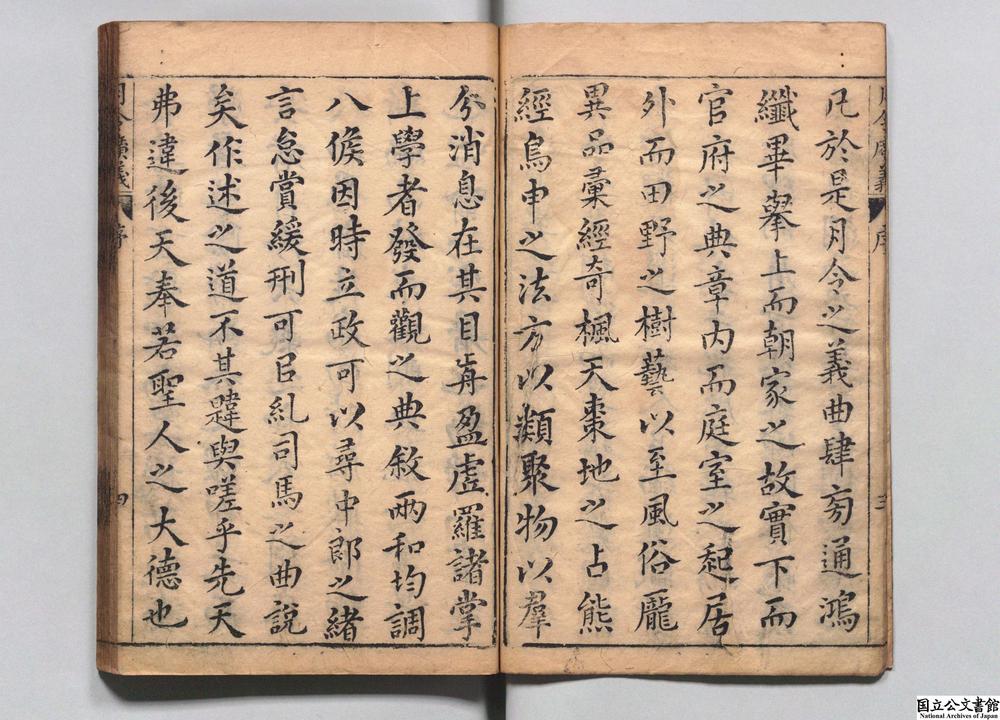 凡於是月令之義曲肆旁通鴻
纖畢舉上而朝家之故實下而
官府之典章内而庭室之起居
外而田野之樹藝以至風俗龎
異品彙經奇楓天棗地之占熊
經鳥申之法方以類聚物以羣
分消息在其目歬盈虛羅諸掌
上學者發而觀之典敘兩和均調
八候因時立政可以尋中郎之緒
言怠賞緩刑可㠯糺司馬之曲說
矣作述之道不其韙與嗟乎先天
弗違後天奉若聖人之大德也
月令廣義
序
三
月令廣義
序
四
国立公文書館
National Archives of Japan